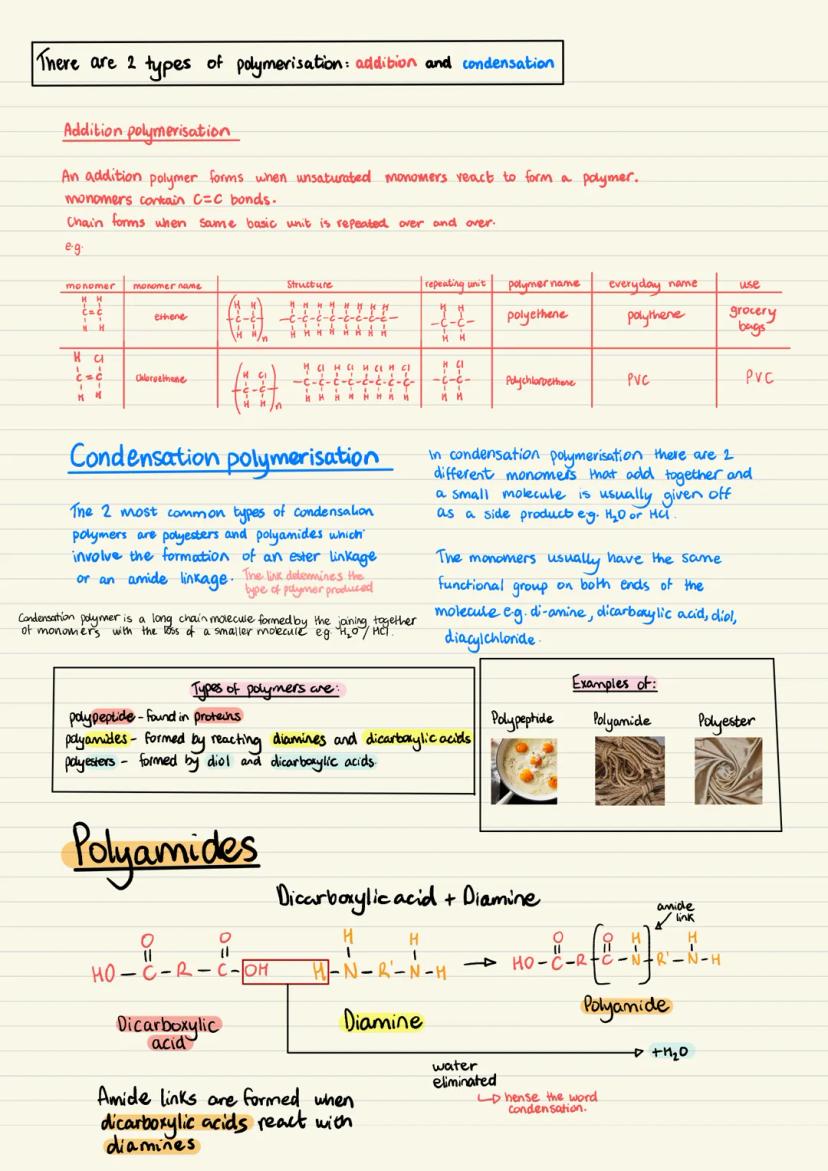 There are 2 types of polymerisation: addition and condensation
Addition polymerisation
An addition polymer forms when unsaturated monomers react to form a polymer.
monomers contain C=C bonds.
Chain forms when same basic unit is repeated over and over.
e.g.
monomer monomer name Structure repeating unit polymer name everyday name use
H H
C=C
H H
ethene
H H
-C-C-
H H
n
H H H H H H H H
-C-C-C-C-C-C-C-C-
H H H H H H H H
H H
-C-C-
H H
polyethene
polythene
grocery
bags
H Cl
C=C
H H
Chloroethene
H Cl
-C-C-
H H
n
H Cl H Cl H Cl H Cl
-C-C-C-C-C-C-C-C-
H H H H H H H H
H Cl
-C-C-
H H
Polychloroethene
PVC
PVC
Condensation polymerisation
The 2 most common types of condensation
polymers are polyesters and polyamides which
involve the formation of an ester linkage
or an amide linkage. The link determines the
type of polymer produced
Condensation polymer is a long chain molecule formed by the joining together
of monomers with the loss of a smaller molecule e.g. H₂O / HCl.
In condensation polymerisation there are 2
different monomers that add together and
a small molecule is usually given off
as a side product e.g. H₂O or HCl.
The monomers usually have the same
functional group on both ends of the
molecule e.g. di-amine, dicarboxylic acid, diol,
diacylchloride.
Types of polymers are:
polypeptide - found in proteins
polyamides - formed by reacting diamines and dicarboxylic acids
polyesters - formed by diol and dicarboxylic acids.
Examples of:
Polypeptide Polyamide Polyester
Polyamides
Dicarboxylic acid + Diamine
O O
HO-C-R-C-OH
H H
H-N-R'-N-H
amide
link
O O H H
HO-C-R-C-N-R'-N-H
Dicarboxylic
acid
Diamine
Polyamide
+H₂O
water
eliminated
hense the word
condensation.
Amide links are formed when
dicarboxylic acids react with
diamines